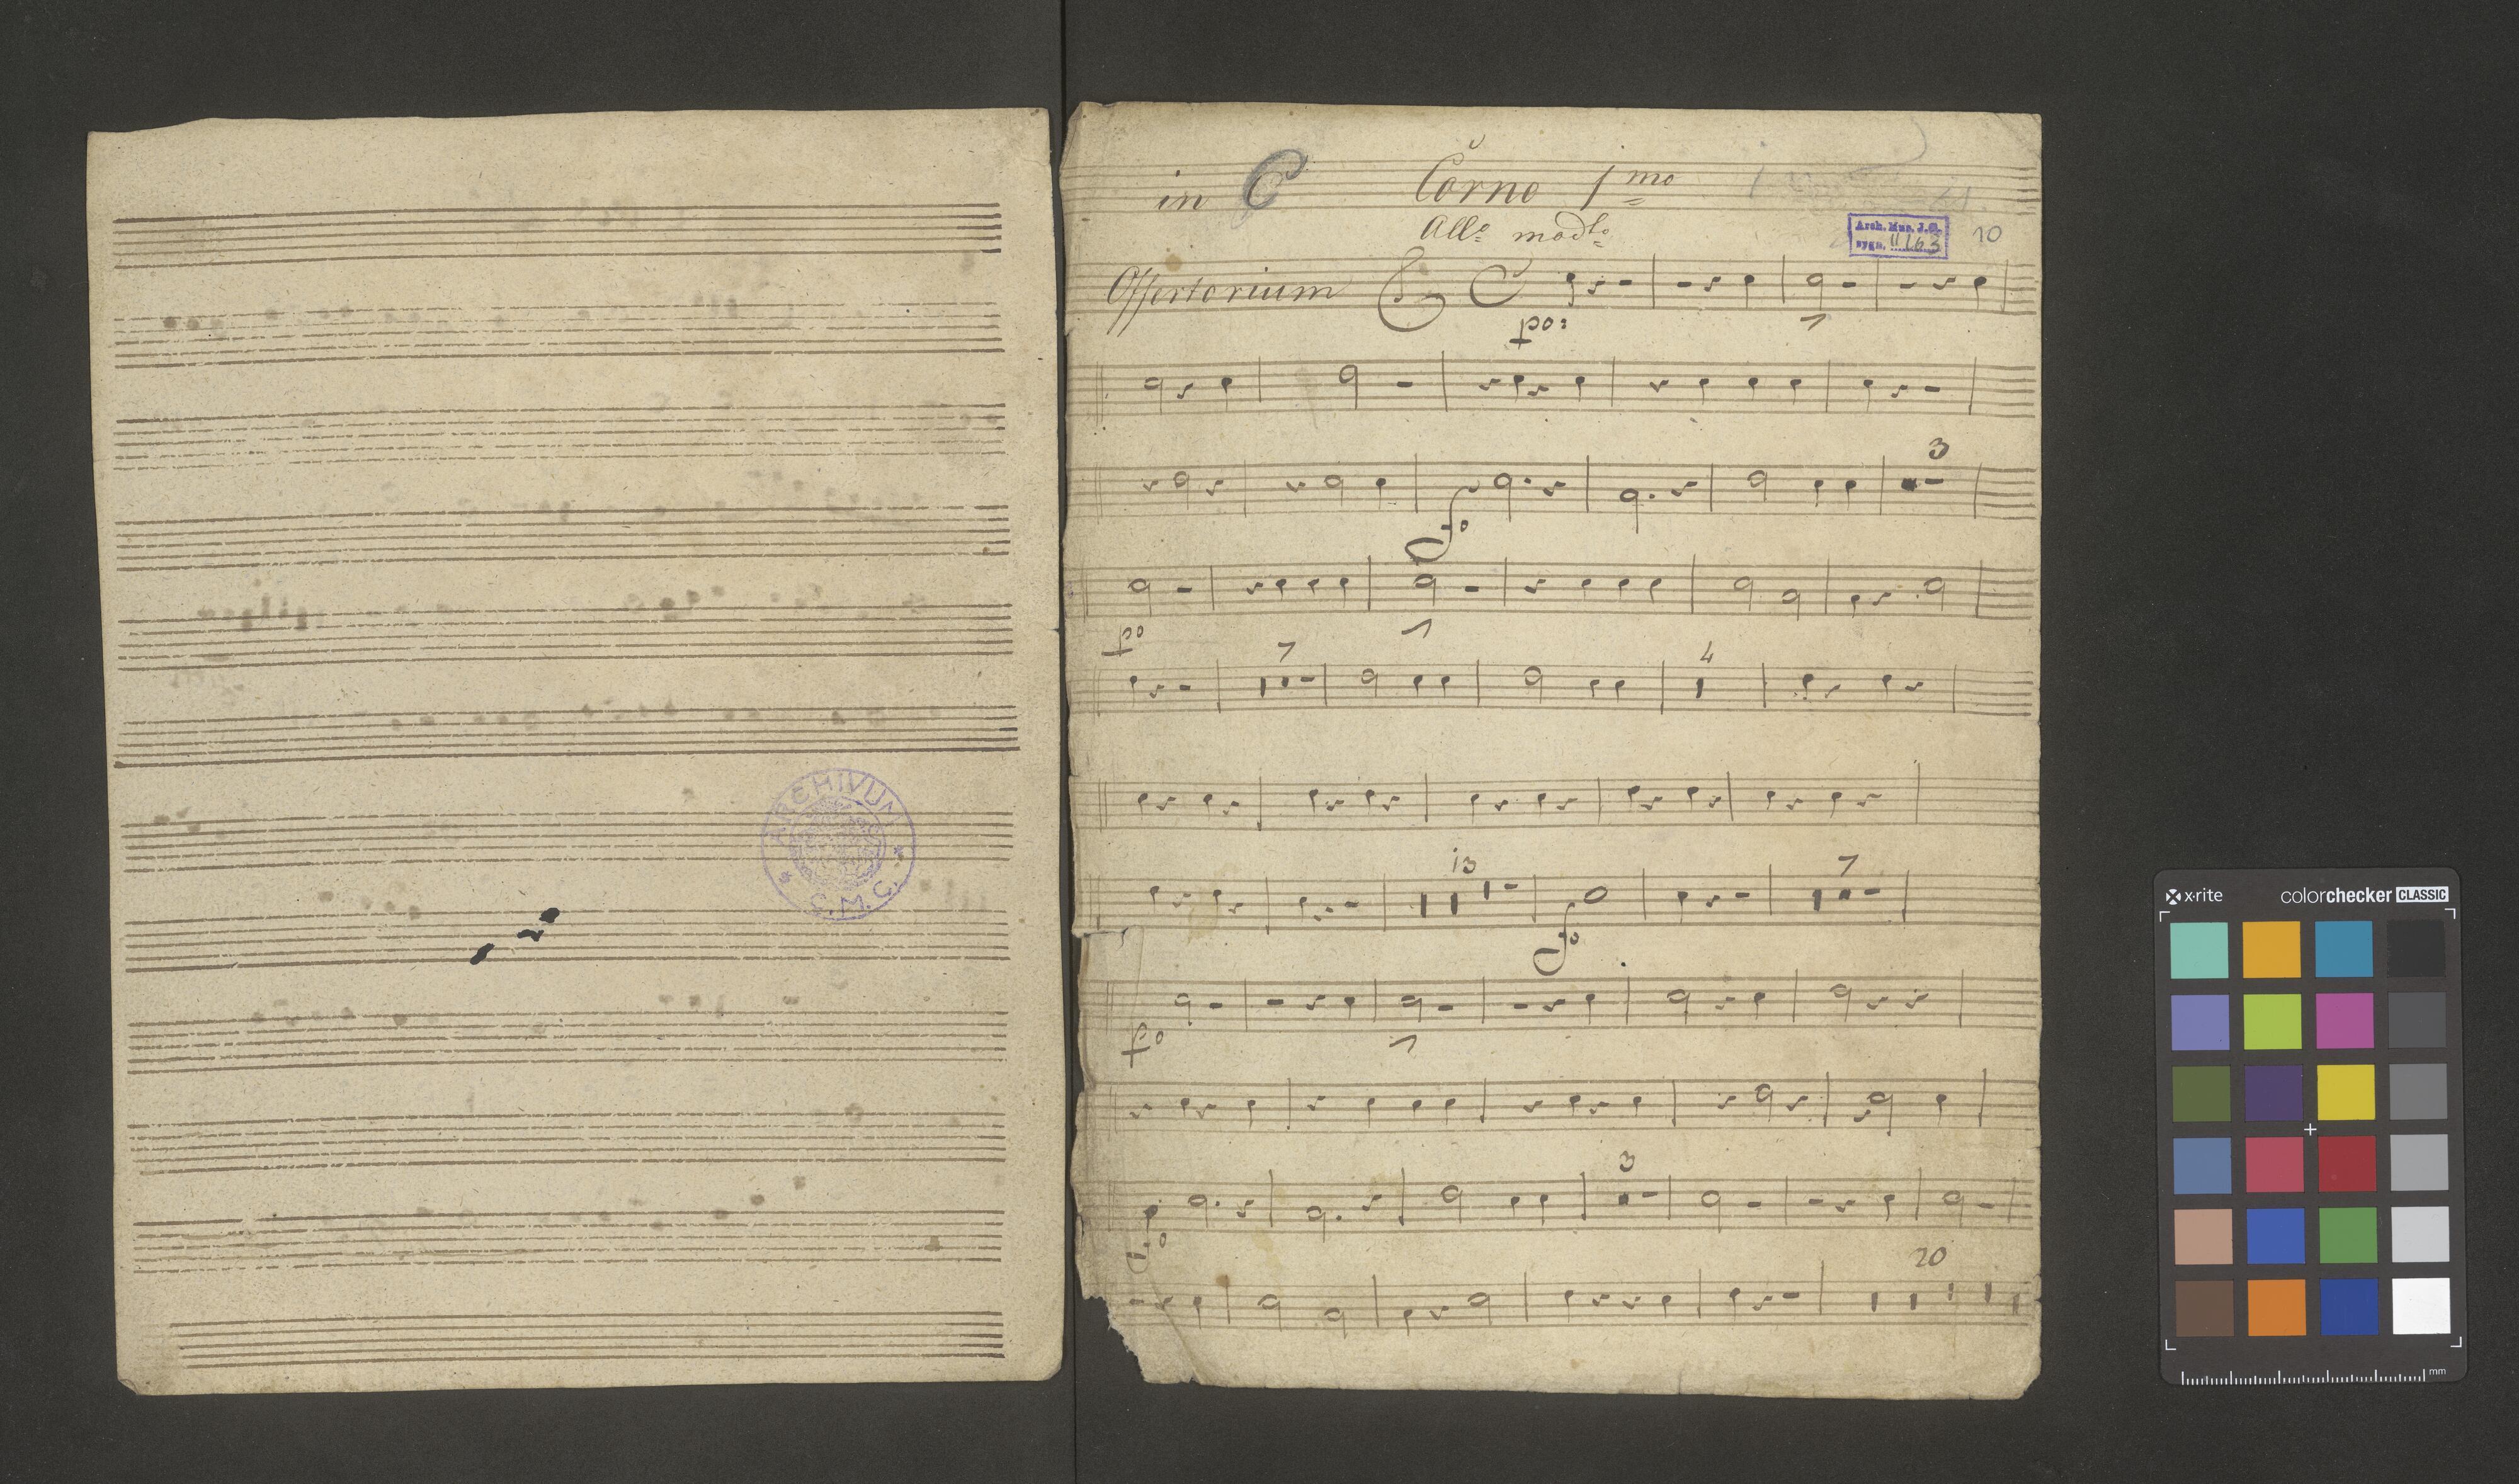 ARCHIVUM
C.M.C.
in C Corno 1mo
Allo modto
Arch. Mus. J.G.
sygn. II/63
10
Offertorium
po:
3
fo
po
7
4
13
7
fo
po
3
fo
20
x·rite colorchecker CLASSIC
mm